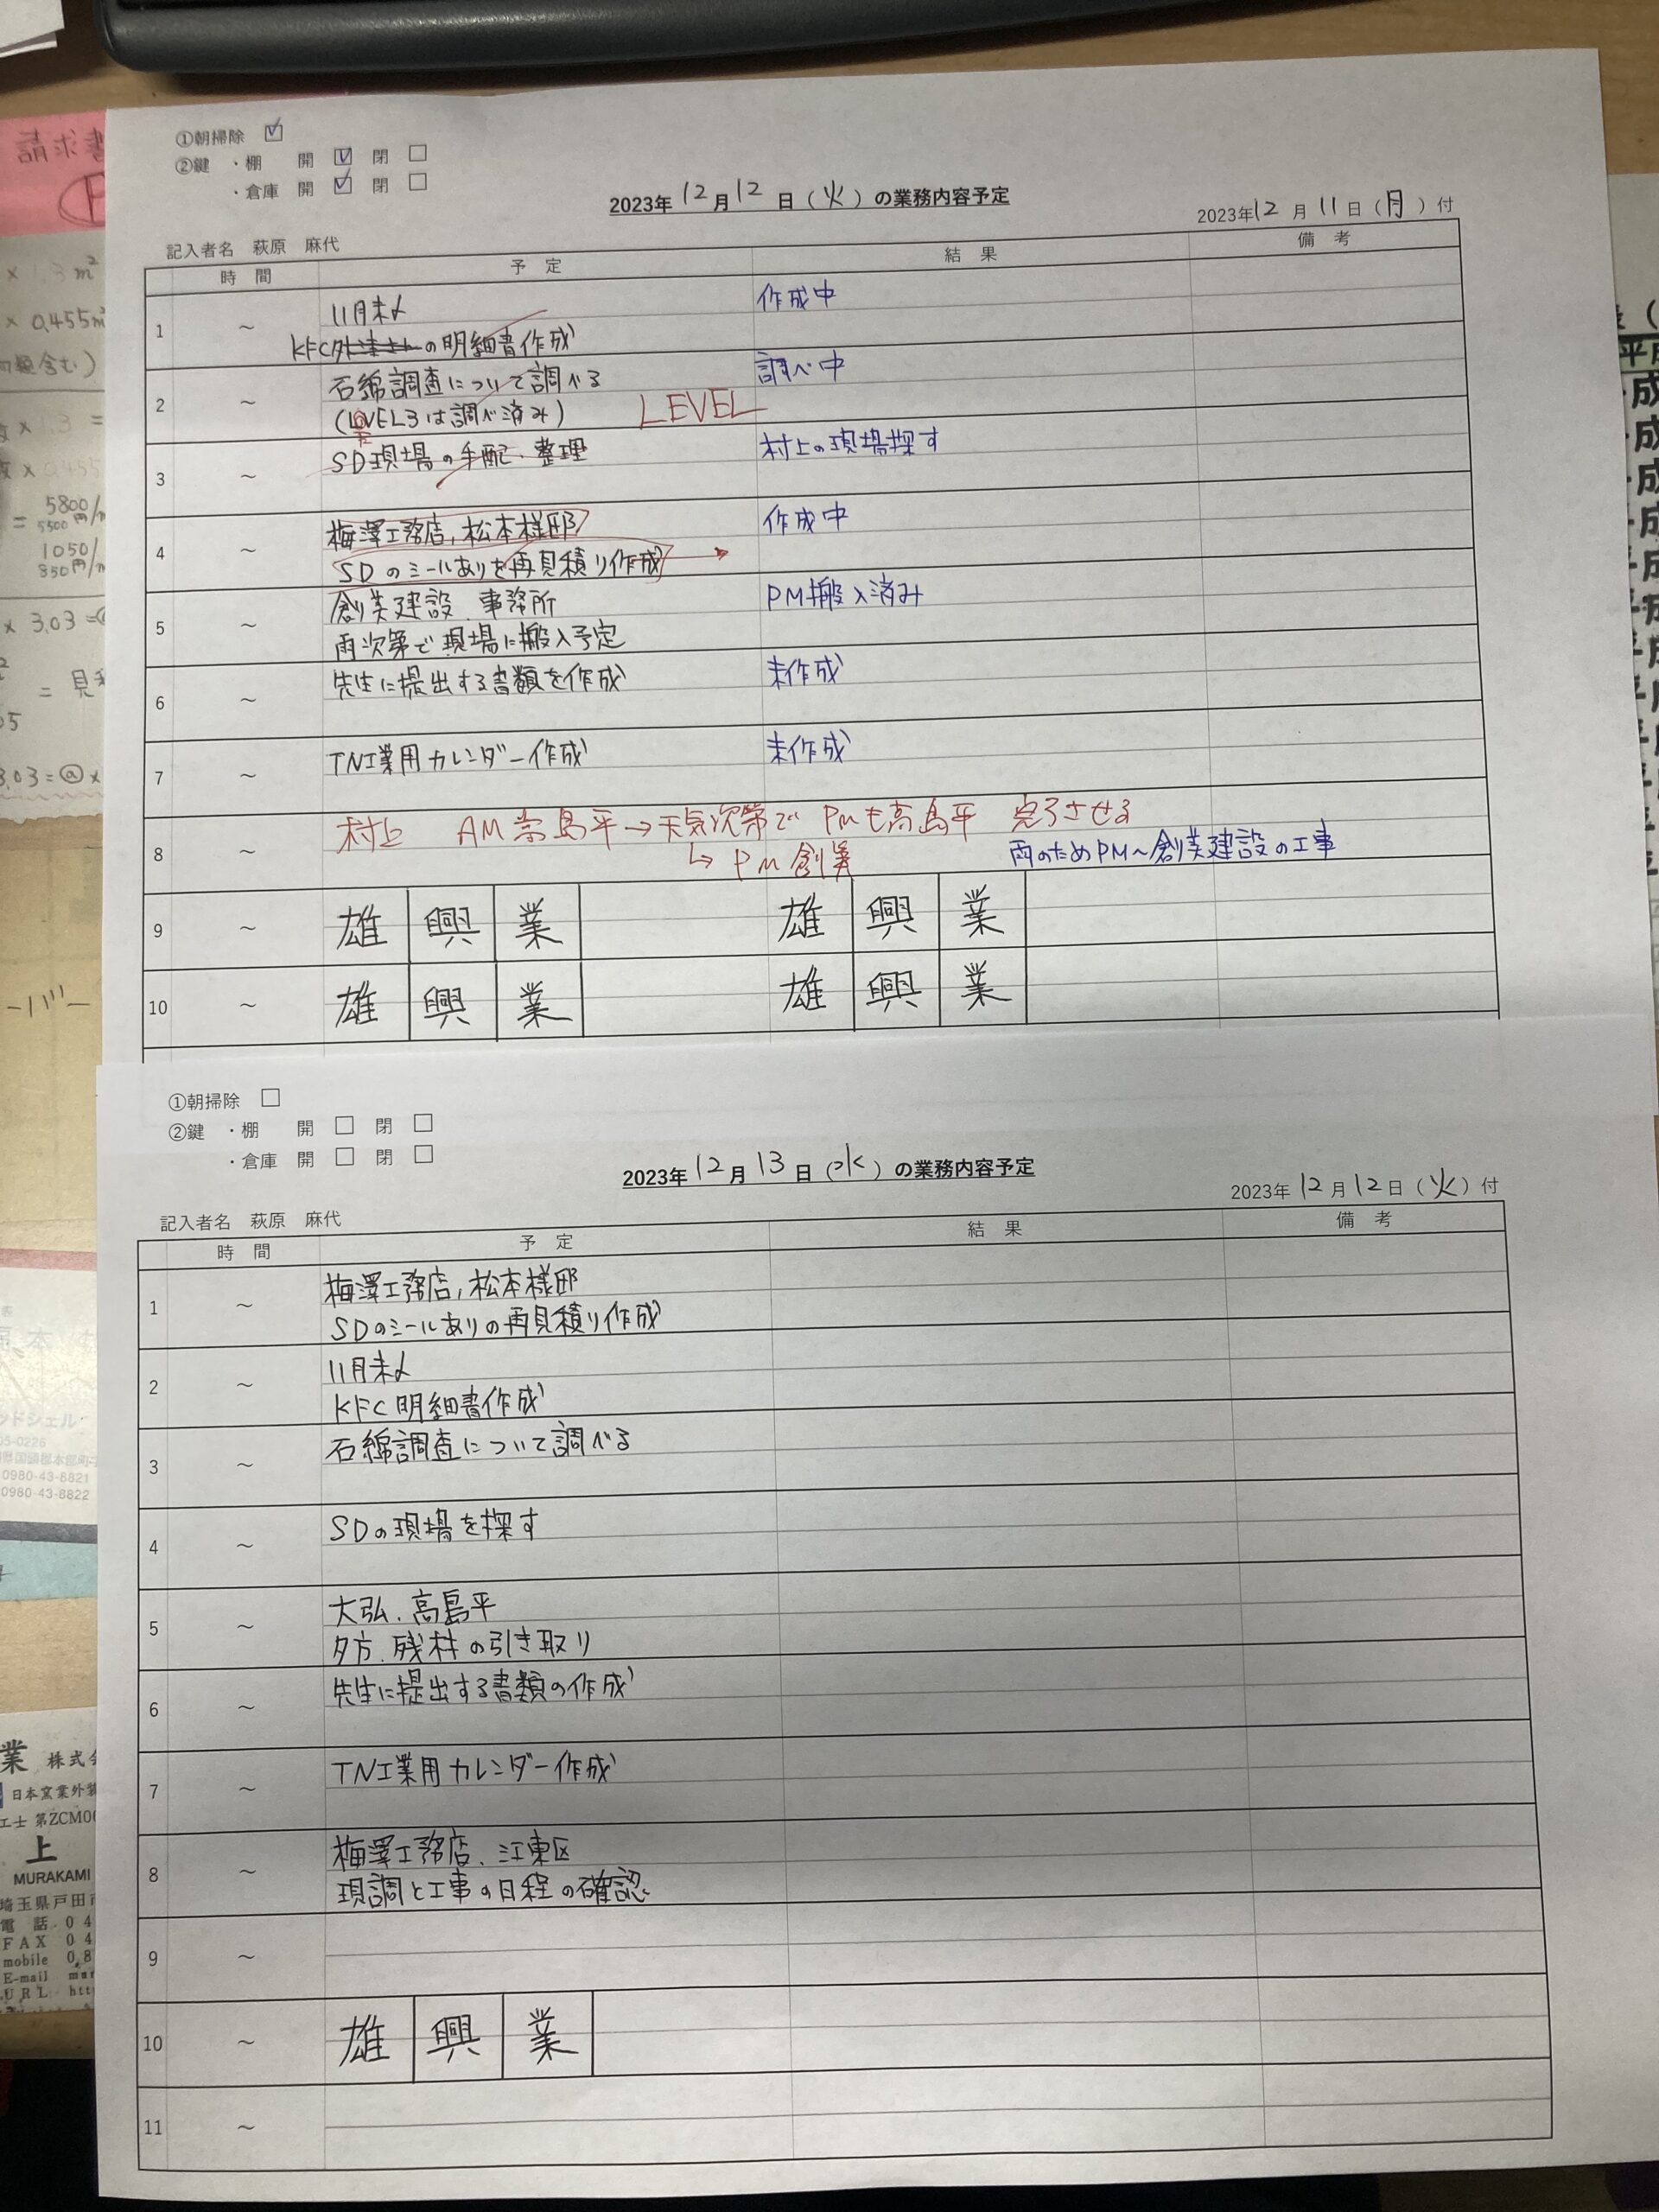 ①朝掃除 ☑
②鍵 ・棚 開 ☑ 閉 □
・倉庫 開 ☑ 閉 □
2023年12月12日（火）の業務内容予定
2023年12月11日（月）付
記入者名 萩原 麻代
時 間 予 定 結 果 備 考
1 ～ 11月末〆 作成中
KFCの明細書作成
2 ～ 石綿調査について調べる 調べ中
(LEVEL3は調べ済み) LEVEL
3 ～ SD現場の手配、整理 村上の現場探す
4 ～ 梅澤工務店,松本様邸 作成中
SDのミールありを再見積り作成
5 ～ 創美建設、事務所 PM搬入済み
雨次第で現場に搬入予定
6 ～ 先生に提出する書類を作成 未作成
7 ～ TN工業用カレンダー作成 未作成
8 ～ 村上 AM高島平→天気次第でPMも高島平 完了させる
↳PM創美 雨のためPM～創美建設の工事
9 ～ 雄 興 業 雄 興 業
10 ～ 雄 興 業 雄 興 業
①朝掃除 □
②鍵 ・棚 開 □ 閉 □
・倉庫 開 □ 閉 □
2023年12月13日（水）の業務内容予定
2023年12月12日（火）付
記入者名 萩原 麻代
時 間 予 定 結 果 備 考
1 ～ 梅澤工務店,松本様邸
SDのミールありの再見積り作成
2 ～ 11月末〆
KFC明細書作成
3 ～ 石綿調査について調べる
4 ～ SDの現場を探す
5 ～ 大弘、高島平
夕方、残材の引き取り
6 ～ 先生に提出する書類の作成
7 ～ TN工業用カレンダー作成
8 ～ 梅澤工務店、江東区
現調と工事の日程の確認
9 ～
10 ～ 雄 興 業
11 ～
請求書
× 1.3 m²
× 0.455m²
5800/
5500円/
1050/
850円/
× 3.03
-バー
05-0226
0980-43-8821
0980-43-8822
業 株式会
日本窯業外装
工士 第ZCM0
上
MURAKAMI
埼玉県戸田市
電 話 0 4
FAX 0 4
mobile
E-mail
URL